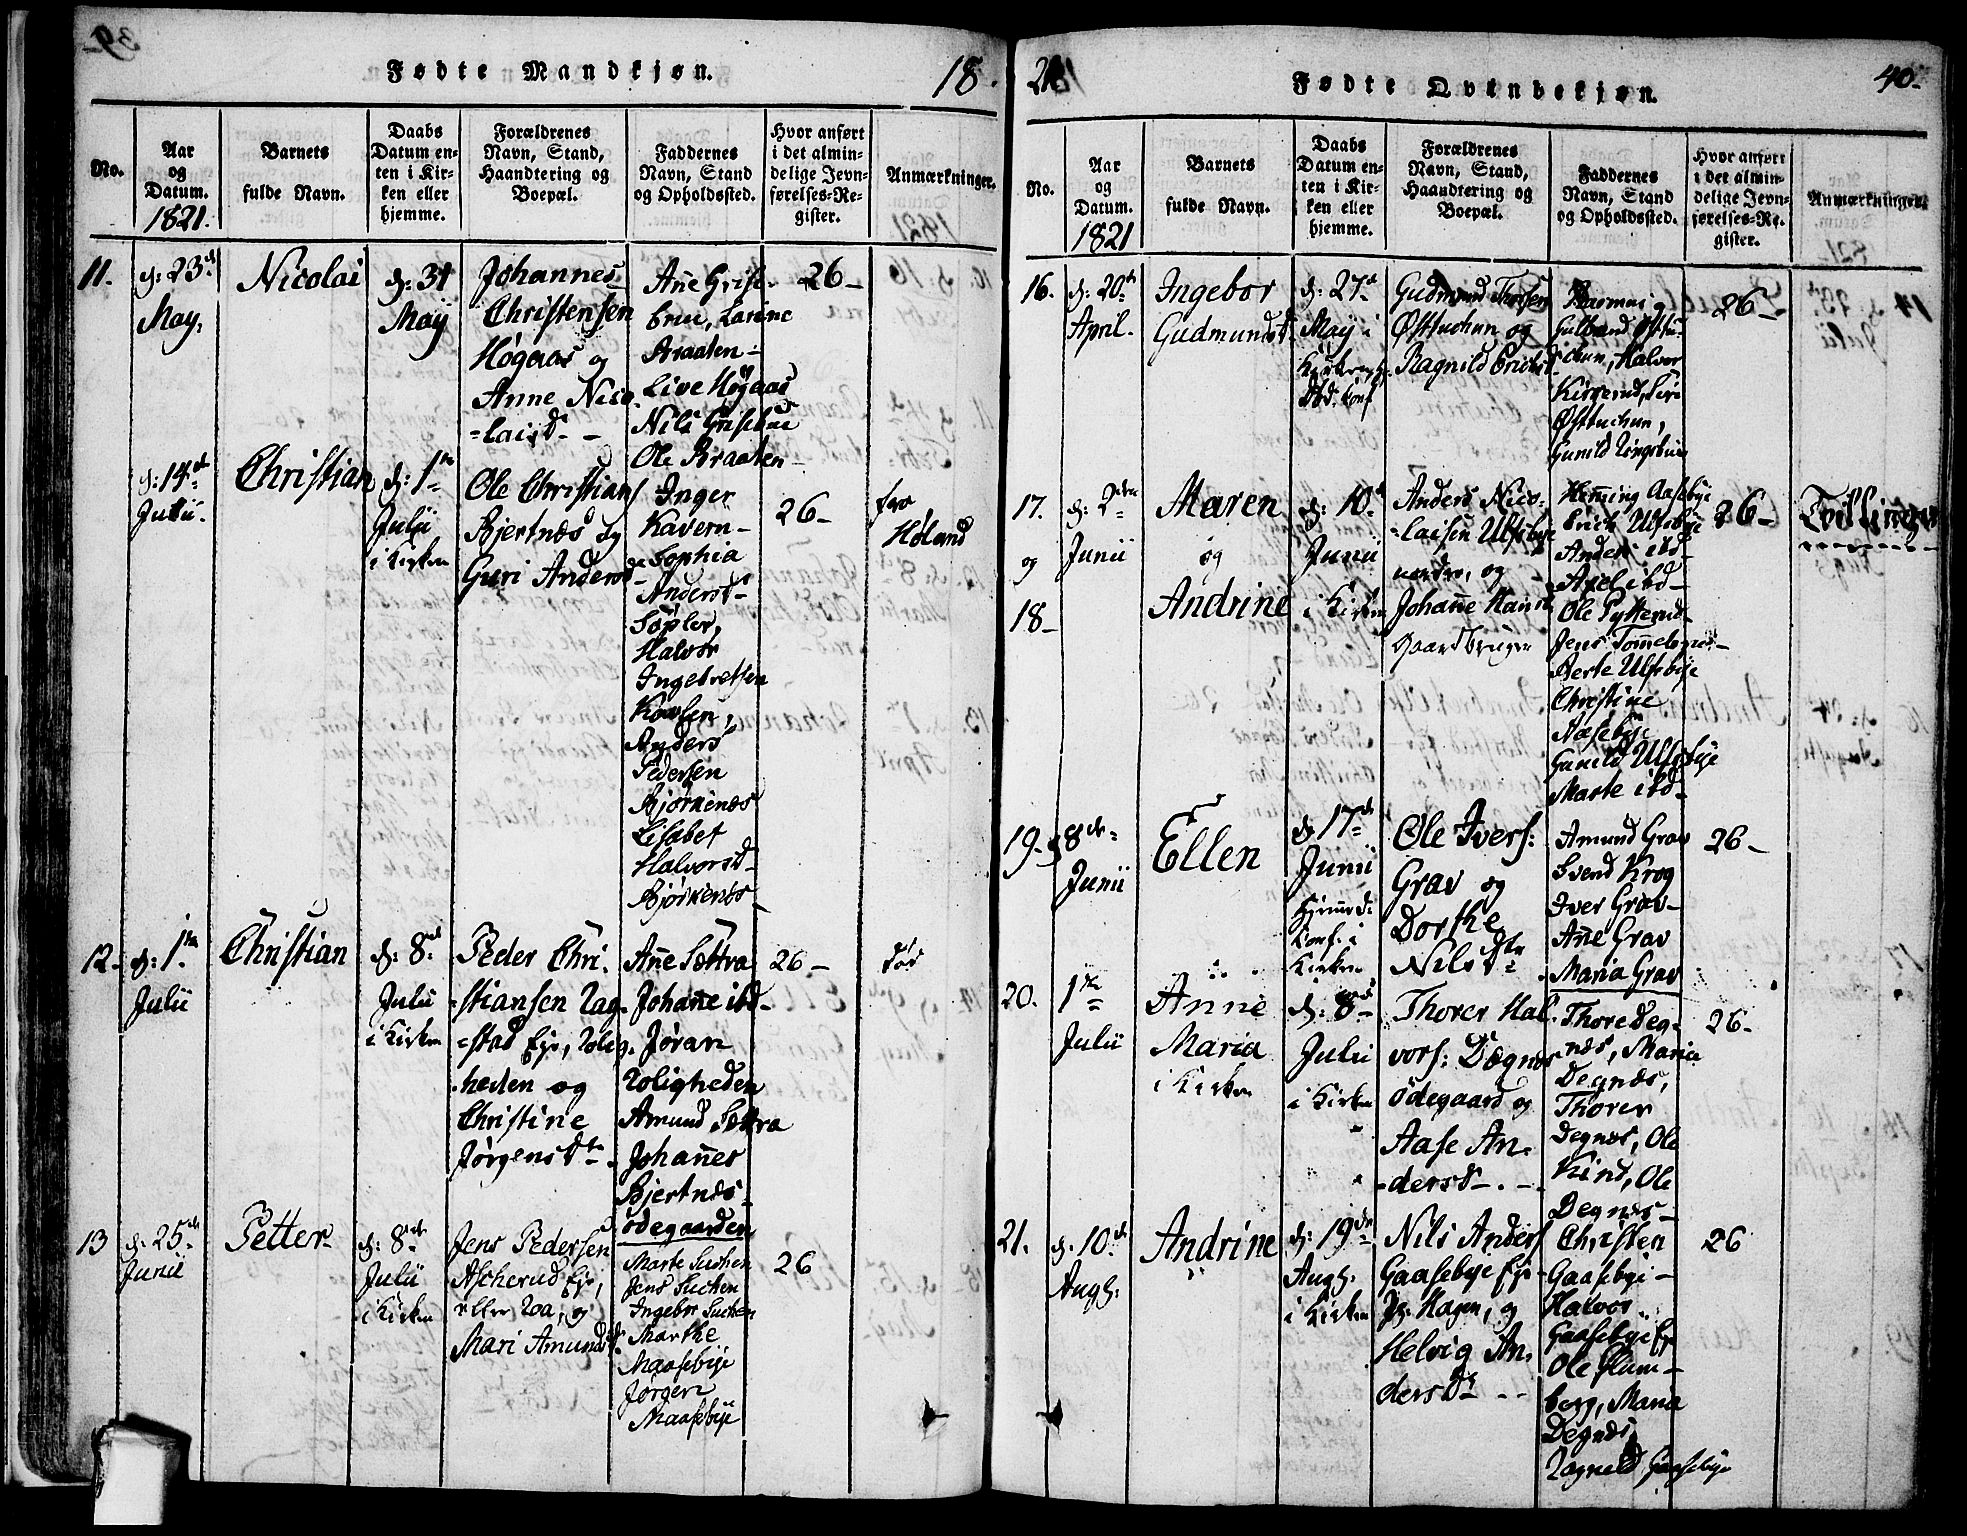 Fødte Mandkjøn.
18
No.
Aar
og
Datum.
1821.
Barnets
fulde Navn.
Daabs
Datum en-
ten i Kir-
ken eller
hjemme.
Forældrenes
Navn, Stand,
Haandtering og
Boepæl.
Faddernes
Navn, Stand
og Opholdssted.
Hvor anført
i det almin-
delige Jevn-
førelses-Re-
gister.
Anmærkninger.
11.
d: 23d
May.
Nicolai
d: 31
Maÿ
Johannes
Christensen
Høgaas og
Anne Nico-
=laisd. -
Añe Grise-
brue, Larine
Braaten -
Live Høgaas
Nils Grisebue
Ole Braaten -
26-
d: 14de
Julii.
Christian
d: 1te
Julii
i Kirken
Ole Christians
Bjertnæs og
Guri Andersd
Inger
Kavern-
Sophia
Anderst-
Søpler,
Halvor
Ingebretsen
Anders
Pedersen
Bjørkenæs
Lisabet
Halvorsd-
Bjørkenæs-
26-
fra
Høland
12-
d: 1te
Julii
Christian
d: 8de
Julii
i Kirken
Peder Chri-
=stiansen Rag-
=stad Eje, Rolig-
heden og
Christine
Jørgensdtr.
Añe Sættra
Johañe ibd-
Jøran
Roligheden
Amund Sættra
Johañes
Bjertnæs-
ødegaarden
26-
13
d: 25de
Junii
Petter
d: 8de
Julii
i Kirken
Jens Pedersen
Ascherud Eje,
eller Roa, og
Mari Amundsd.
Marte Suchen
Jens Suchen
Ingebor Suchen
Marthe
Maasebÿe
Jørgen
Maasebÿe
26
Fødte Qvindekjøn.
21
40
No.
Aar
og
Datum.
1821
Barnets
fulde Navn.
Daabs
Datum en-
ten i Kir-
ken eller
hjemme.
Forældrenes
Navn, Stand,
Haandtering og
Boepæl.
Faddernes
Navn, Stand
og Opholdssted.
Hvor anført
i det almin-
delige Jevn-
førelses-Re-
gister.
Anmærkninger.
16.
d: 20de
April.
Ingebor
Gudmundsd.
d: 27de
Maÿ i
Gudmund Thorsen
Østtuchun og
Ragnild Erichsd.
Rasmus og
Gulbrand Østtu-
chun, Halvor
Kisserud, Siri
Østtuchun,
Gunild Lingsbue
26-
17.
og
18-
d: 2den
Junii
Maren
og
Andrine
d: 10de
Junii
i Kirken
Anders Nico-
=laisen Ulfsbÿe
nordre, og
Johañe Hansd
Gaardbruger
Heñing Aasebÿe
Erich Ulfsbÿe
Anders ibd-
Axel ibd-
Ole Pytterud
Jens Tom̃elsrud-
Berte Ulfsbÿe
Christine
Aasebÿe
Gunild Ulfsbÿe
Marte ibd-
26-
Tvillinger
19-
8de
Junii
Ellen
d. 17de
Junii
Hjemmed.
Conf. i
Kirken
Ole Ivers:
Grav og
Dorthe
Nilsdtr
Amund Grav
Svend Krog
Iver Grav-
Añe Grav
Maria Grav
26-
20.
1te
Julii
Anne
Maria
i Kirken
d: 8de
Julii
i Kirken
Thorer Hal-
vors: Dægnæs
ødegaard og
Aase An-
=dersd-.-
Thore Deg-
næs, Maria
Degnæs,
Thorer
Degnæs, Ole
Kind, Ole
Degnæs-
26-
21.
d. 10de
Augs.
Andrine
d: 19de
Augs.
i Kirken
Nils Anders
Gaasebÿe Eje
Pl. Hagen, og
Helvig An-
dersdtr --
Christen
Gaasebÿe-
Halvor
Gaasebÿe Ej
Ole Flum-
berg, Maria
Degnæs,
Ragnild Gaasebÿe
26